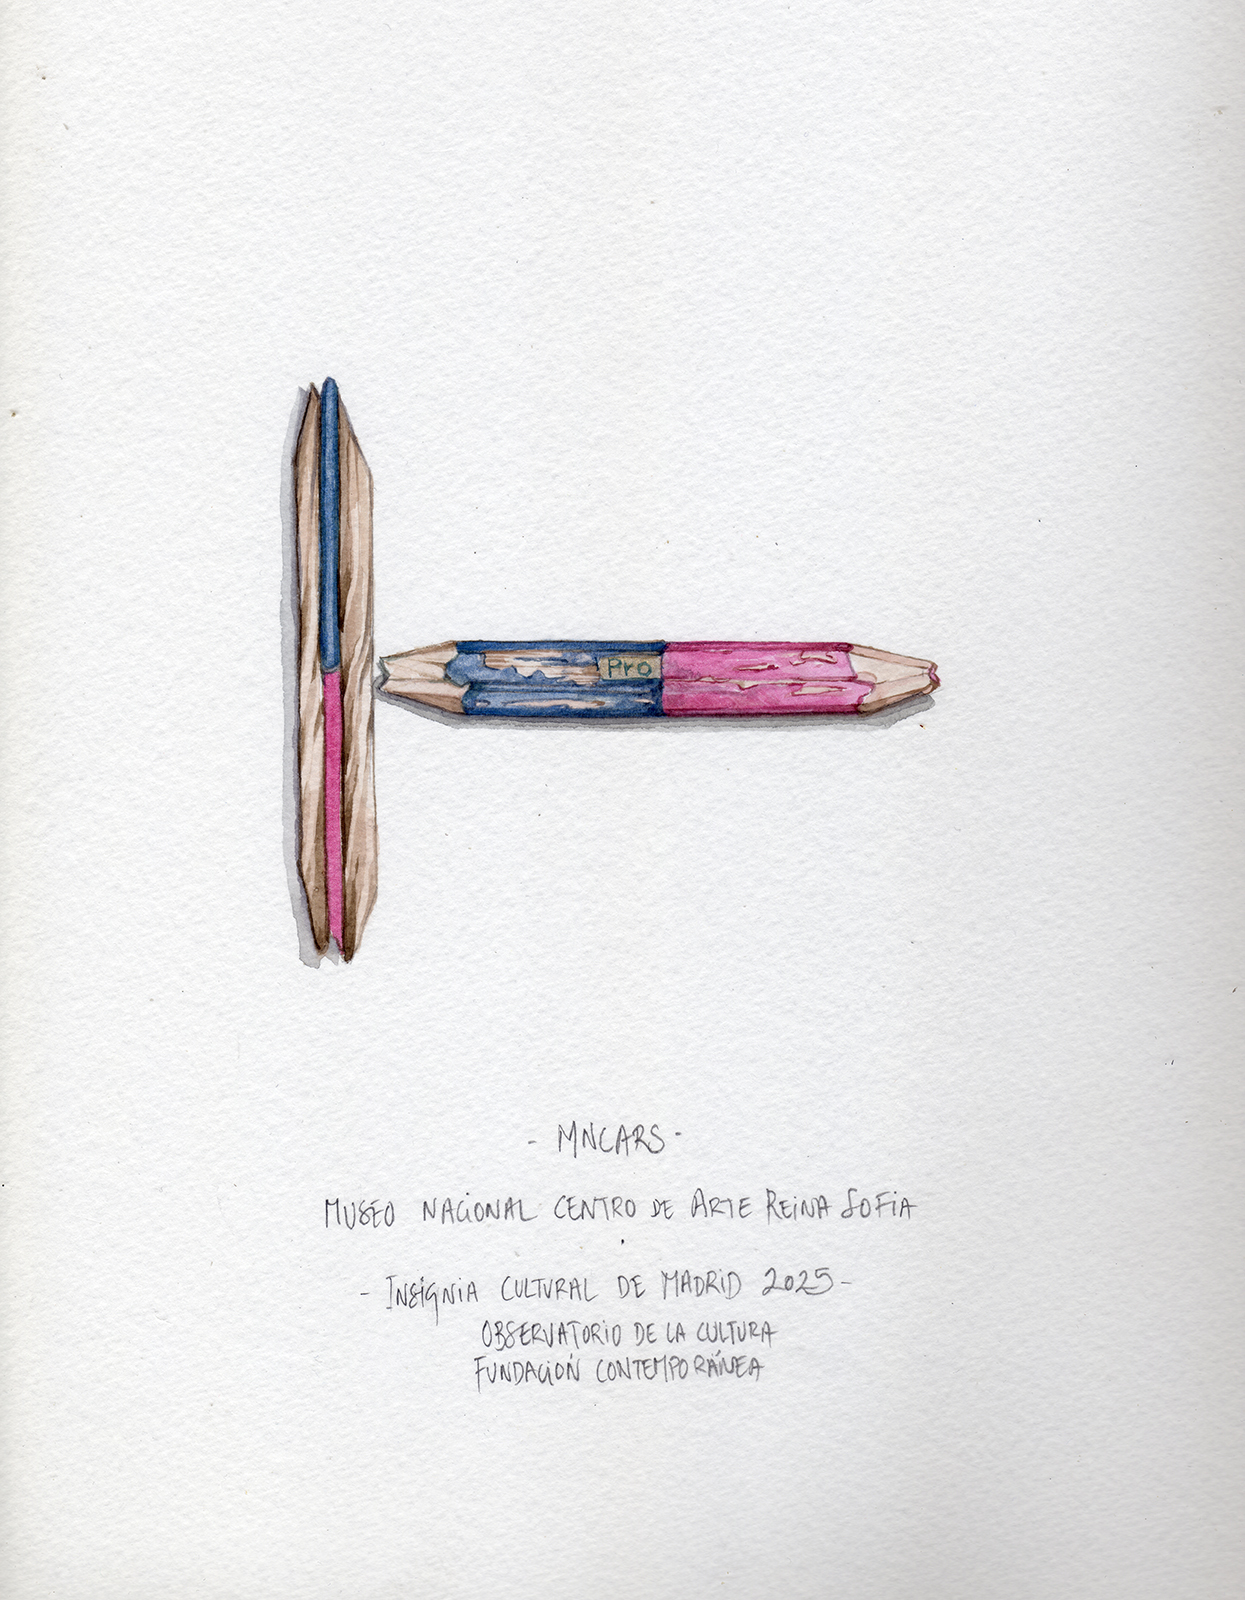 Pro
- MNCARS -
MUSEO NACIONAL CENTRO DE ARTE REINA SOFIA
- INSIGNIA CULTURAL DE MADRID 2025 -
OBSERVATORIO DE LA CULTURA
FUNDACIÓN CONTEMPORÁNEA